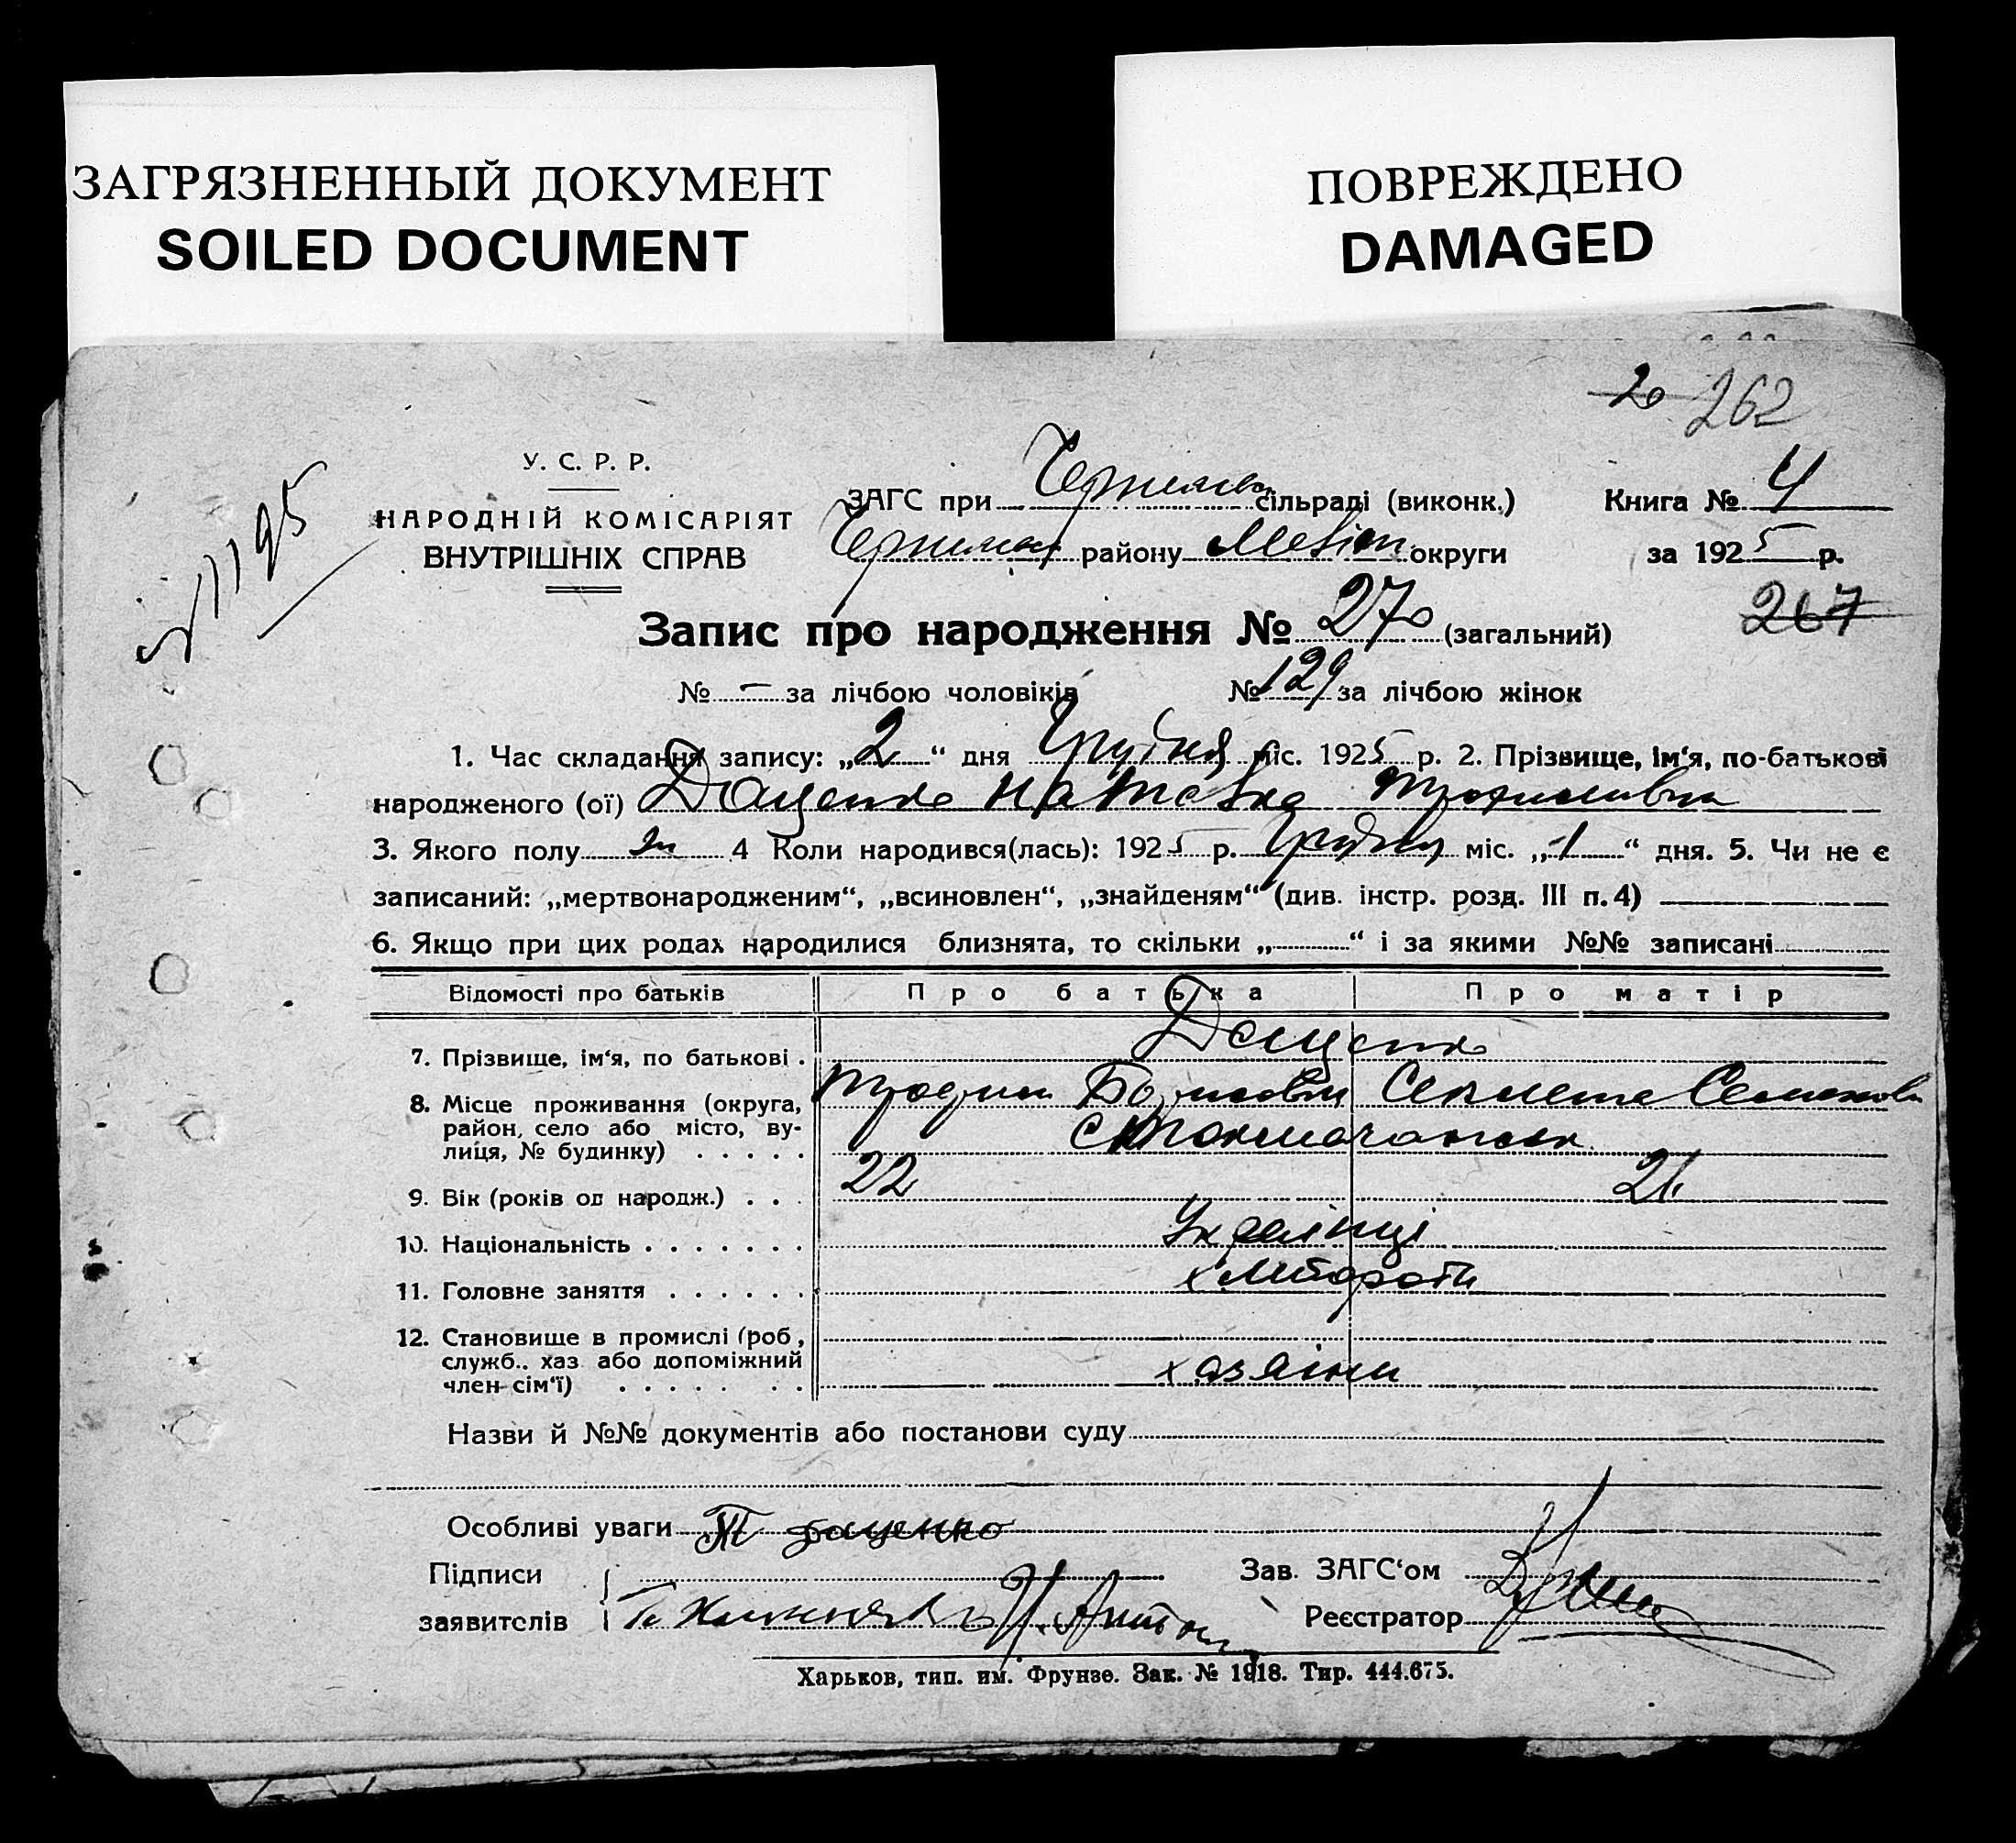 ЗАГРЯЗНЕННЫЙ ДОКУМЕНТ
SOILED DOCUMENT
ПОВРЕЖДЕНО
DAMAGED
20 262
У. С. Р. Р.
НАРОДНІЙ КОМІСАРІЯТ
ВНУТРІШНІХ СПРАВ
ЗАГС при сільраді (виконк.)
району округи
Книга № 4
за 1925 р.
267
Запис про народження № 270 (загальний)
№ – за лічбою чоловіків № 129 за лічбою жінок
1. Час складання запису: „2“ дня Грудня міс. 1925 р. 2. Прізвище, ім‘я, по-батькові
народженого (ої) Доценко Наталка Трохимівна
3. Якого полу 4 Коли народився(лась): 1925 р. Грудня міс. „1“ дня. 5. Чи не є
записаний: „мертвонародженим“, „всиновлен“, „знайденям“ (див. інстр. розд. III п. 4)
6. Якщо при цих родах народилися близнята, то скільки „ “ і за якими №№ записані
Відомості про батьків
Про батька
Про матір
7. Прізвище, ім‘я, по батькові .
Доценко
8. Місце проживання (округа,
район, село або місто, ву-
лиця, № будинку) . . . . .
9. Вік (років од народж.) . . .
22 21
10. Національність . . . . . . .
Українці
11. Головне заняття . . . . . .
хлібороби
12. Становище в промислі (роб,
служб.. хаз або допоміжний
член сім‘ї) . . . . . . .
хазяіни
Назви й №№ документів або постанови суду
Особливі уваги Т Доценко
Підписи
заявителів
Зав. ЗАГС‘ом
Реєстратор
Харьков, тип. им. Фрунзе. Зак. № 1918. Тир. 444.675.